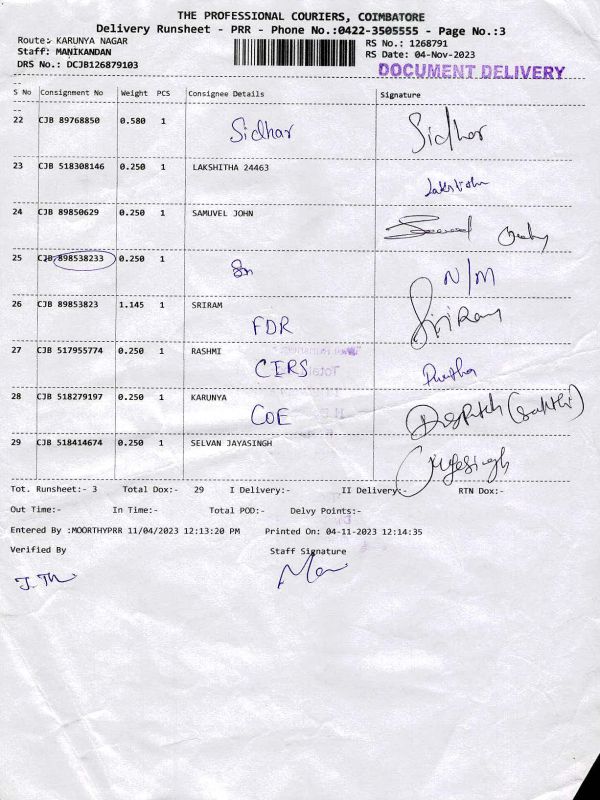 THE PROFESSIONAL COURIERS, COIMBATORE
Delivery Runsheet - PRR - Phone No.:0422-3505555 - Page No.:3
Route:- KARUNYA NAGAR
RS No.: 1268791
Staff: MANIKANDAN
RS Date: 04-Nov-2023
DRS No.: DCJB126879103
DOCUMENT DELIVERY
S No Consignment No Weight PCS Consignee Details Signature
22 CJB 89768850 0.580 1 Sidhar Sidhar
23 CJB 518308146 0.250 1 LAKSHITHA 24463
24 CJB 89850629 0.250 1 SAMUVEL JOHN
25 CJB 898538233 0.250 1 N/M
26 CJB 89853823 1.145 1 SRIRAM Sriram
FDR
27 CJB 517955774 0.250 1 RASHMI
CERS
28 CJB 518279197 0.250 1 KARUNYA
COE
29 CJB 518414674 0.250 1 SELVAN JAYASINGH
Tot. Runsheet:- 3 Total Dox:- 29 I Delivery:- II Delivery:- RTN Dox:-
Out Time:- In Time:- Total POD:- Delvy Points:-
Entered By :MOORTHYPRR 11/04/2023 12:13:20 PM Printed On: 04-11-2023 12:14:35
Verified By Staff Signature